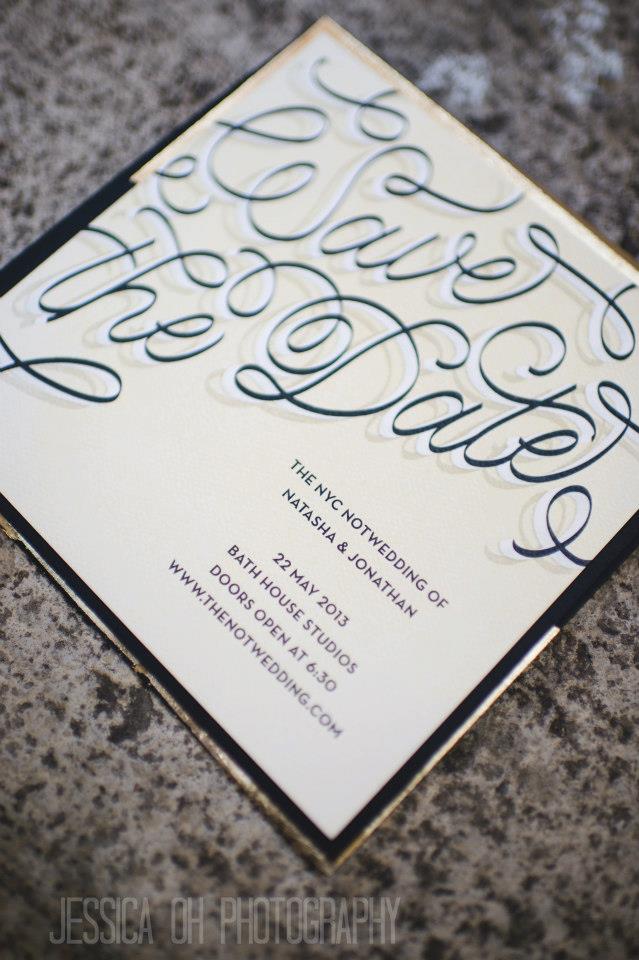 Save
the Date
THE NYC NOTWEDDING OF
NATASHA & JONATHAN
22 MAY 2013
BATH HOUSE STUDIOS
DOORS OPEN AT 6:30
WWW.THENOTWEDDING.COM
JESSICA OH PHOTOGRAPHY